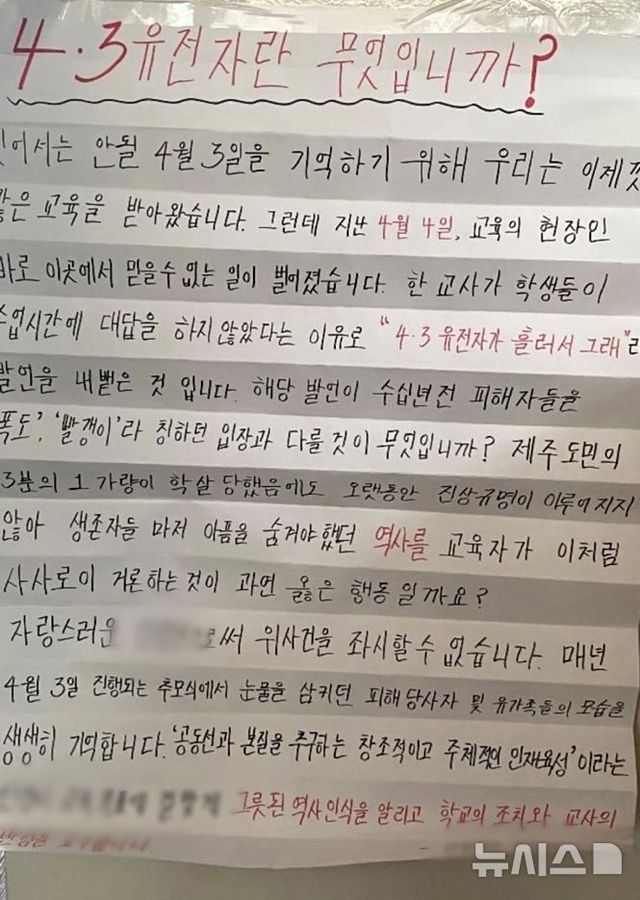 4·3 유전자란 무엇입니까?
잊어서는 안될 4월 3일을 기억하기 위해 우리는 이제껏
같은 교육을 받아왔습니다. 그런데 지난 4월 4일, 교육의 현장인
바로 이곳에서 믿을 수 없는 일이 벌어졌습니다. 한 교사가 학생들이
수업시간에 대답을 하지않았다는 이유로 "4·3 유전자가 흘러서 그래"라
발언을 내뱉은 것 입니다. 해당 발언이 수십년 전 피해자들을
폭도', '빨갱이'라 칭하던 입장과 다를것이 무엇입니까? 제주도민의
3분의 1 가량이 학살 당했음에도 오랫동안 진상규명이 이루어지지
않아 생존자들 마저 아픔을 숨겨야했던 역사를 교육자가 이처럼
사사로이 거론하는것이 과연 옳은 행동일까요?
자랑스러운 로써 위사건을 좌시할 수 없습니다. 매년
4월 3일 진행되는 추모식에서 눈물을 삼키던 피해당사자 및 유가족들의 모습을
생생히 기억합니다. '공동선과 본질을 추구하는 창조적이고 주체적인 인재육성'이라는
그릇된 역사인식을 알리고 학교의 조치와 교사의
뉴시스